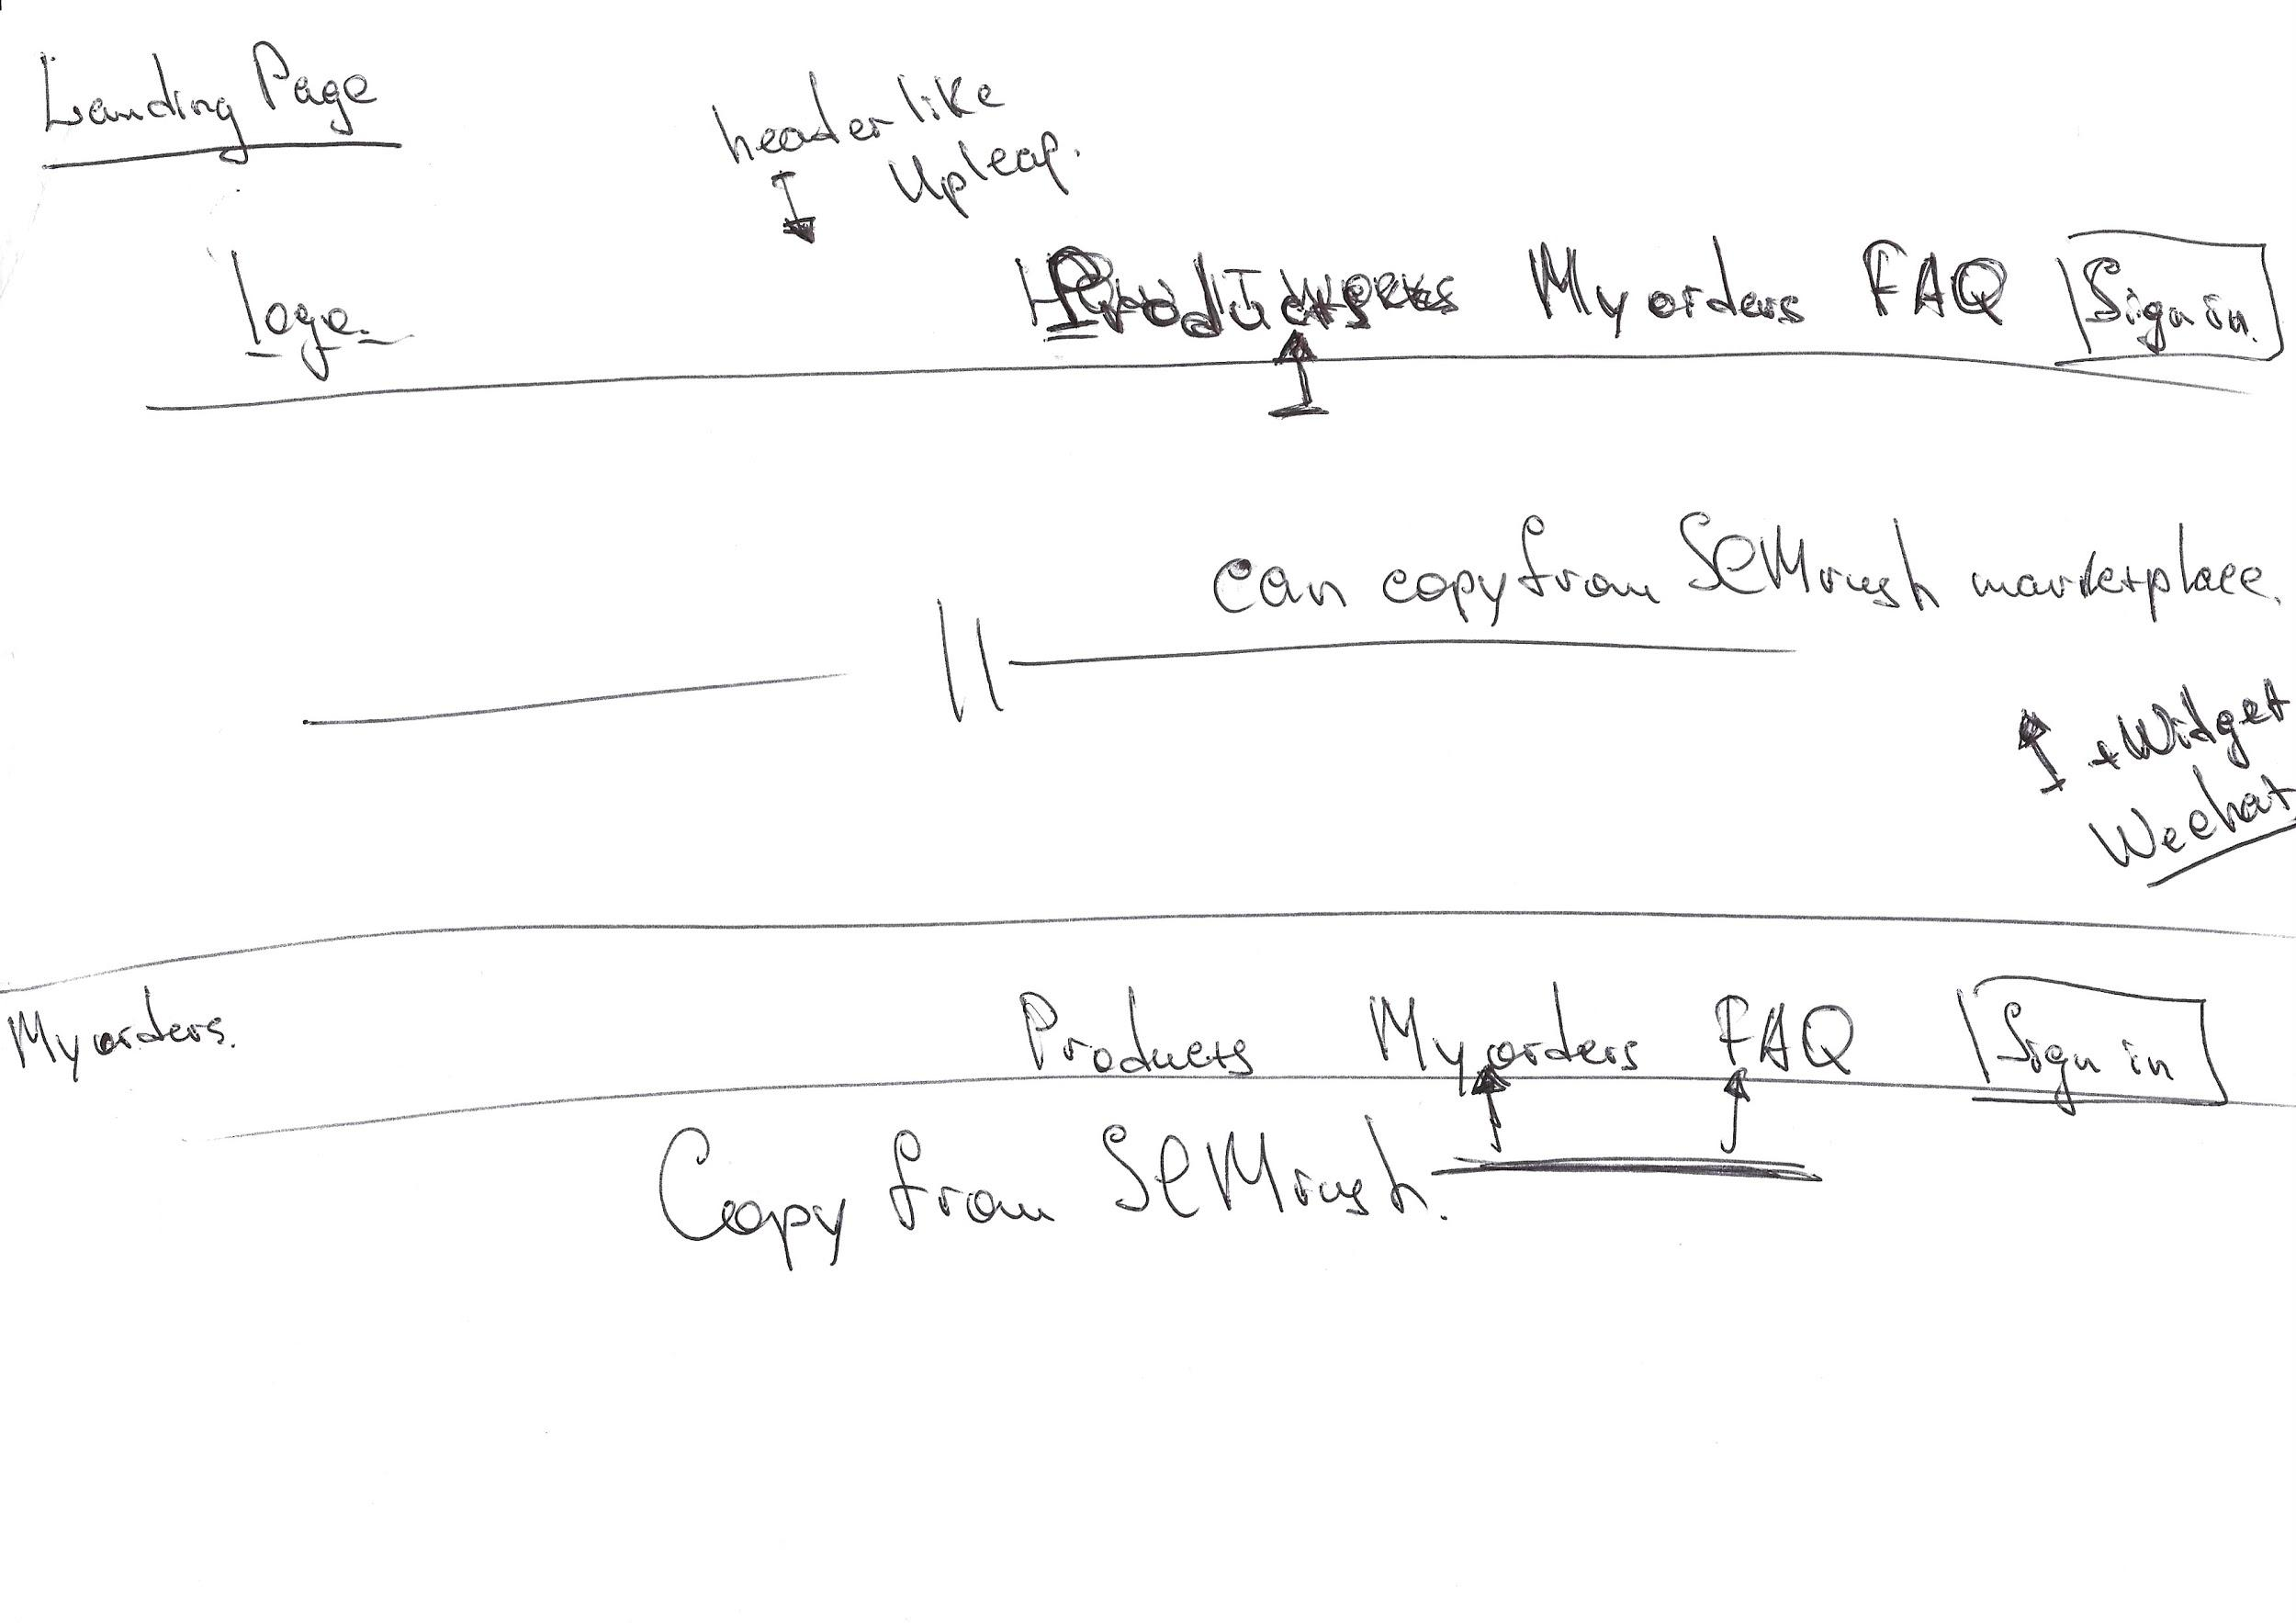 Landing Page
header like
Upleap.
logo. Products My orders FAQ Sign in.
can copy from SEMrush marketplace.
+ Widget
Wechat
My orders. Products My orders FAQ Sign in
Copy from SEMrush.